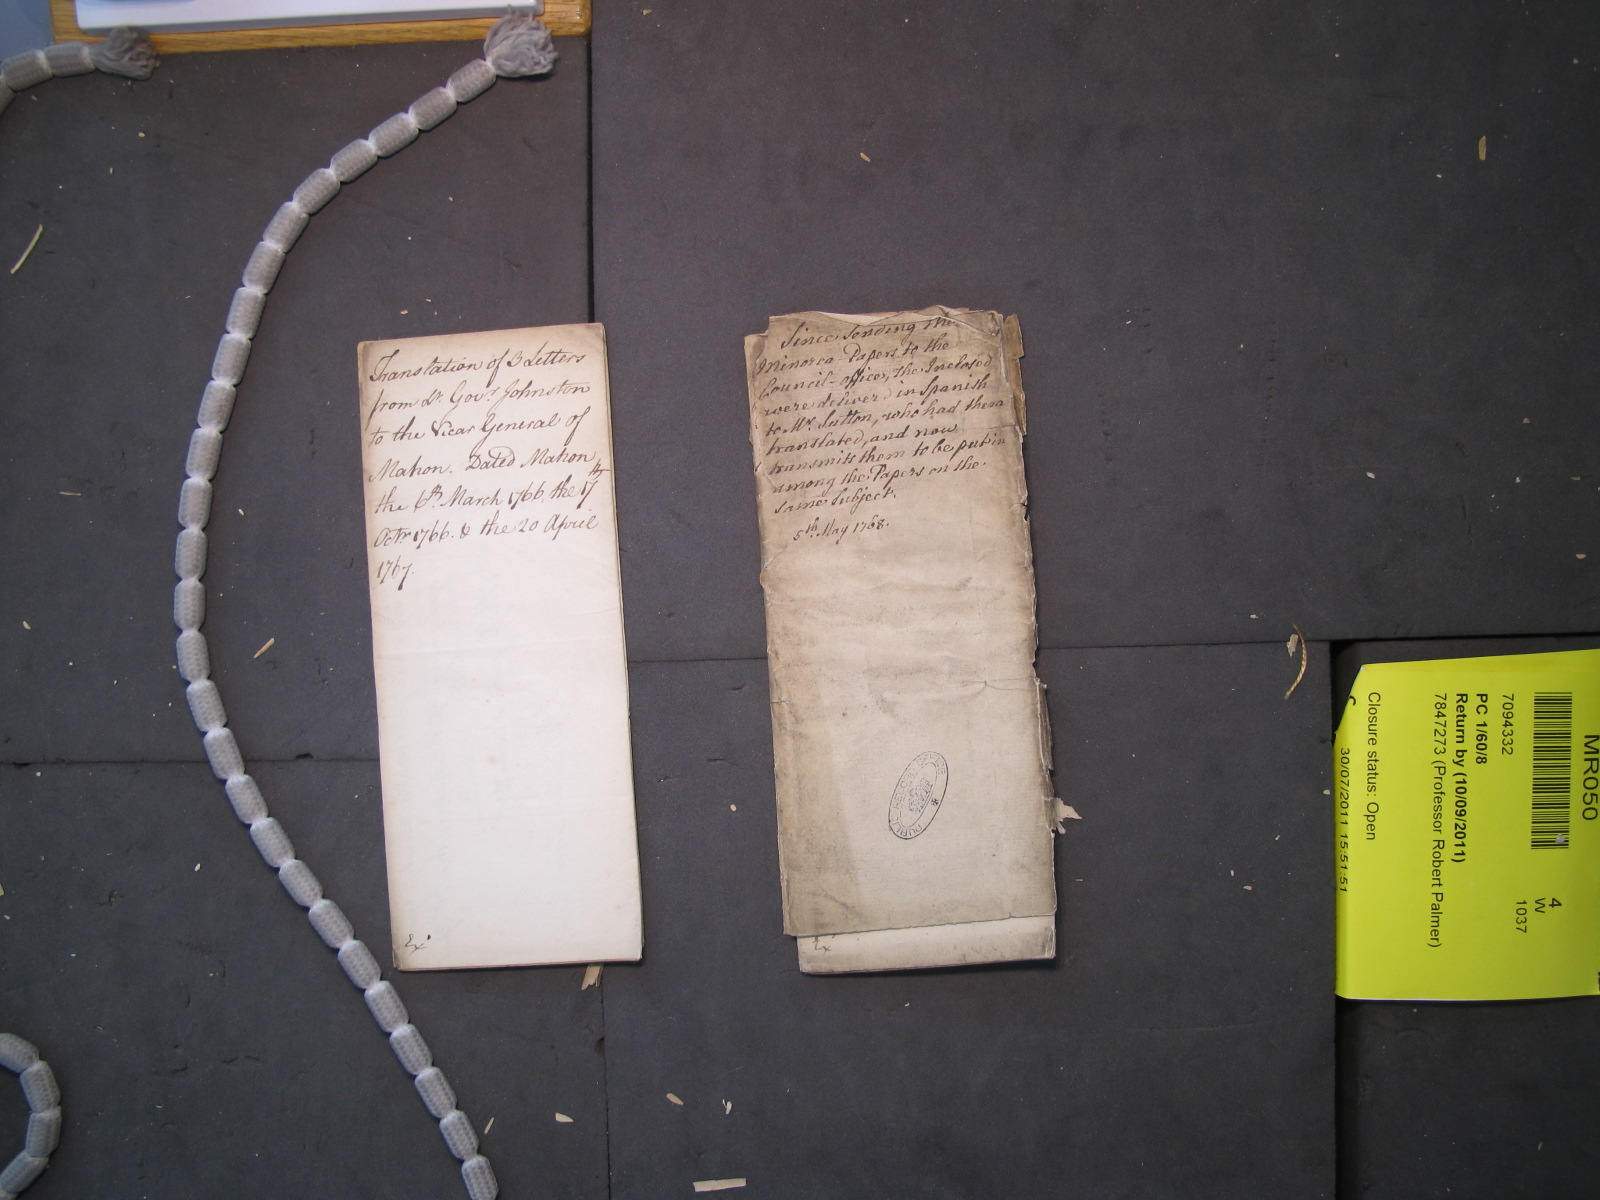 Translation of 3 Letters
from Lt. Govr. Johnston
to the Vicar General of
Mahon. Dated Mahon
the 6th March 1766, the 17th
Octr. 1766. & the 20 April
1767.
Ex.
Since sending the
Minorca Papers to the
Council-office, the Inclosed
were deliver'd in Spanish
to Mr. Sutton, who had them
translated, and now
transmitts them to be put in
among the Papers on the
same Subject.
5th. May 1768.
PUBLIC RECORD OFFICE
Ex.
MR050
4
W
1037
7094332
PC 1/60/8
Return by (10/09/2011)
7847273 (Professor Robert Palmer)
Closure status: Open
30/07/2011 15:51:51